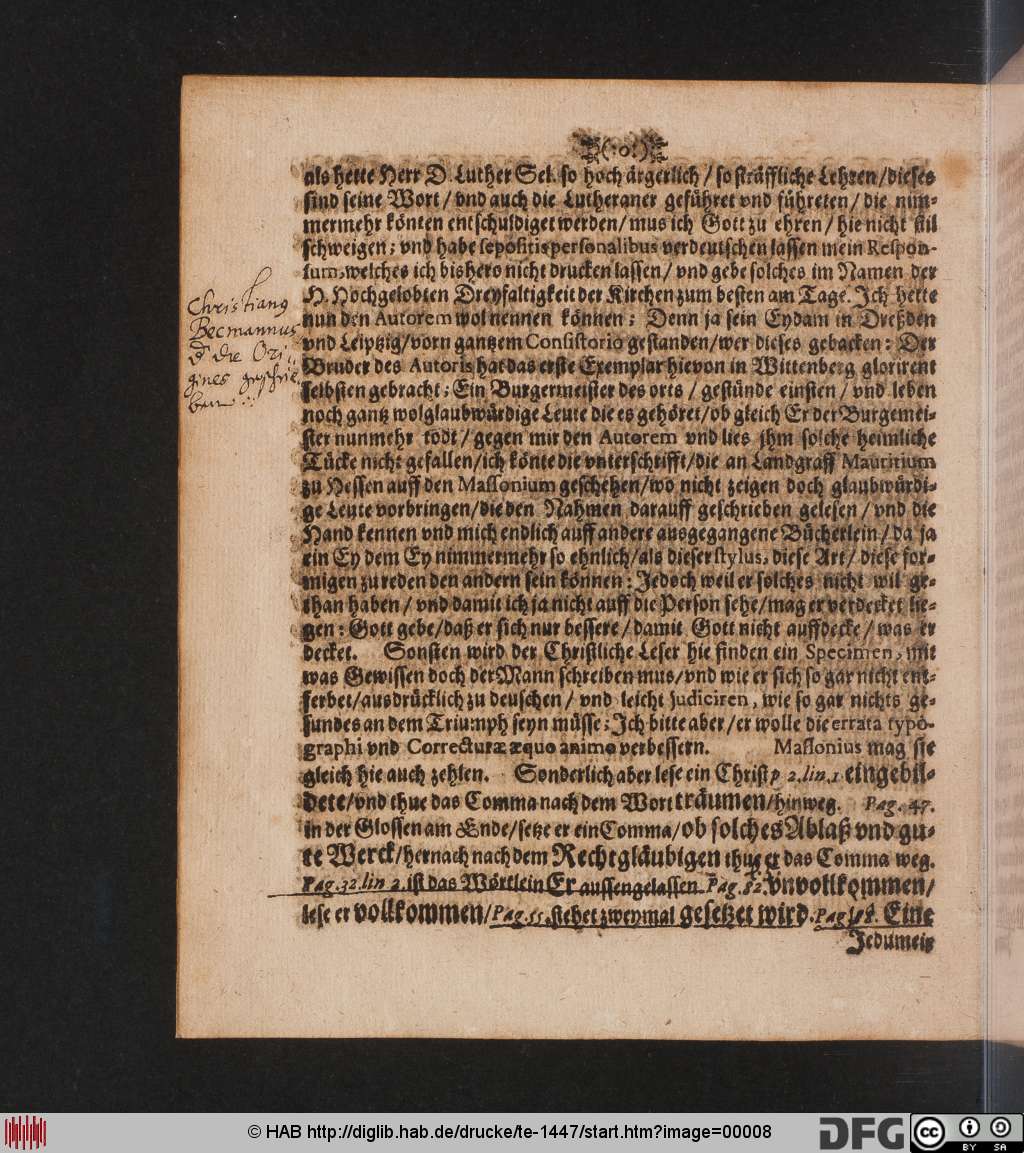 (·o·)
als hette Herr D. Luther Sel. so hoch ärgerlich / so sträffliche Lehren / dieses
sind seine Wort / vnd auch die Lutheraner geführet vnd führeten / die nim-
mermehr könten entschuldiget werden / mus ich Gott zu ehren / hie nicht stil
schweigen; vnd habe sepositis personalibus verdeutschen lassen mein Respon-
sum, welches ich bishero nicht drucken lassen / vnd gebe solches im Namen der
H. Hochgelobten Dreyfaltigkeit der Kirchen zum besten am Tage. Ich hette
nun den Autorem wol nennen können: Denn ja sein Eydam in Dreßden
vnd Leiptzig / vorn gantzem Consistorio gestanden / wer dieses gebacken: Der
Bruder des Autoris hat das erste Exemplar hievon in Wittenberg glorirent
selbsten gebracht; Ein Burgermeister des orts / gestünde einsten / vnd leben
noch gantz wolglaubwürdige Leute die es gehöret / ob gleich Er der Burgemei-
ster nunmehr todt / gegen mir den Autorem vnd lies jhm solche heimliche
Tücke nicht gefallen / ich könte die vnterschrifft / die an Landgraff Mauritium
zu Hessen auff den Massonium geschehen / wo nicht zeigen doch glaubwürdi-
ge Leute vorbringen / die den Nahmen darauff geschrieben gelesen / vnd die
Hand kennen vnd mich endlich auff andere ausgegangene Bücherlein / da ja
ein Ey dem Ey nimmermehr so ehnlich / als dieser stylus, diese Art / diese for-
migen zu reden den andern sein können: Jedoch weil er solches nicht wil ge-
than haben / vnd damit ich ja nicht auff die Person sehe / mag er verdecket lie-
gen: Gott gebe / daß er sich nur bessere / damit Gott nicht auffdecke / was er
decket. Sonsten wird der Christliche Leser hie finden ein Specimen, mit
was Gewissen doch der Mann schreiben mus / vnd wie er sich so gar nicht ent-
ferbet / ausdrücklich zu deuschen / vnd leicht judiciren, wie so gar nichts ge-
sundes an dem Triumph seyn müsse; Ich bitte aber / er wolle die errata typo-
graphi vnd Correcturæ æquo animo verbessern. Massonius mag sie
gleich hie auch zehlen. Sonderlich aber lese ein Christ p 2. lin. 1 eingebil-
dete / vnd thue das Comma nach dem Wort träumen / hinweg. Pag. 47.
in der Glossen am Ende / setze er ein Comma / ob solches Ablaß vnd gu-
te Werck / hernach nach dem Rechtgläubigen thue er das Comma weg.
Pag. 32. lin 2. ist das Wörtlein Er aussengelassen Pag. 82. vnvollkommen /
lese er vollkommen / Pag. 55. stehet zweymal gesetzet wird. Pag. Eine
Jedumeis
Christianq
Becmannus
die Ori-
gines geschrie
ben
© HAB http://diglib.hab.de/drucke/te-1447/start.htm?image=00008
DFG
cc
BY SA